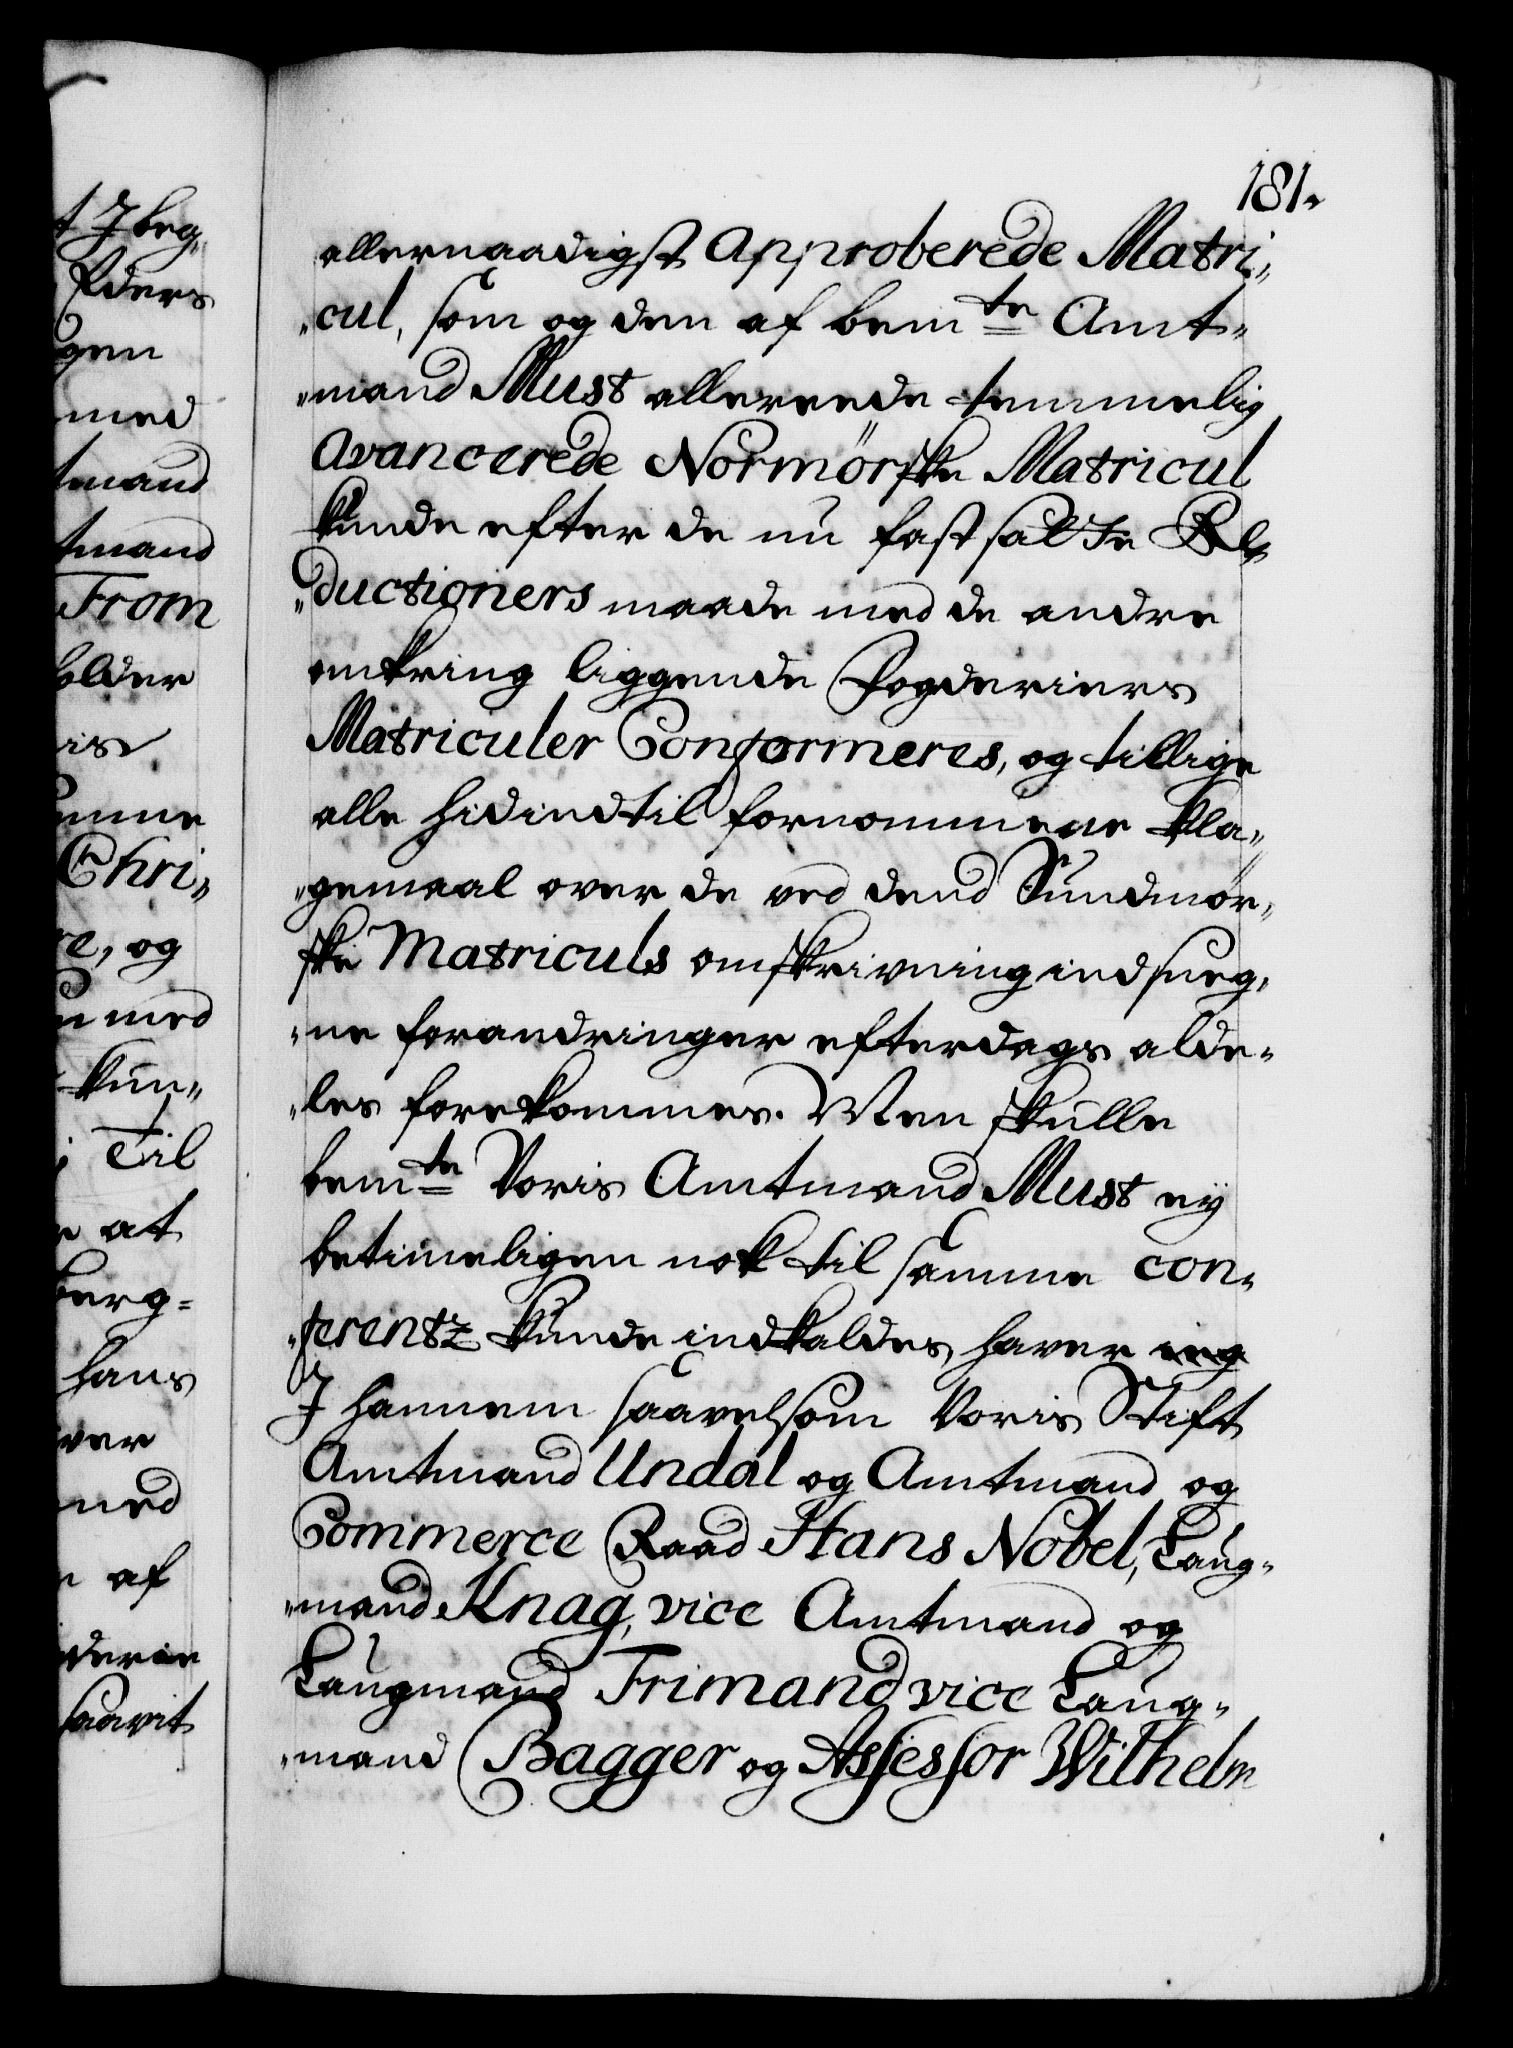 181.
allernaadigst Approberede Matri„
„cul, som og den af bemte Amt„
„mand Must allereede temmelig
Avancerede Normörske Matricul
kunde efter de nu fastsadte Re„
„ductioners maade med de andre
omkring liggende Fogderiers
Matriculer Conformeres, og tillige
alle hidindtil fornommene kla„
„gemaal over de ved dend Sundmör„
ske Matriculs omskrivning indsneg„
„ne forandringer efterdags alde„
„les forekommes. Men skulle
bemte Voris Amtmand Must ey
betimeligen nok til samme con„
„ferentz kunde indkaldes, haver
I hannem saavelsom Voris Stift
Amtmand Undal og Amtmand og
Commerce Raad Hans Nobel, Laug„
„mand Knag, vice Amtmand og
Laugmand Trimand vice Laug„
„mand Bagger og Assessor Wilhelm
med
tmand
From
holder
Chri„
og
med
kun„
Til
at
berg=
hans
ver
med
af
saavit